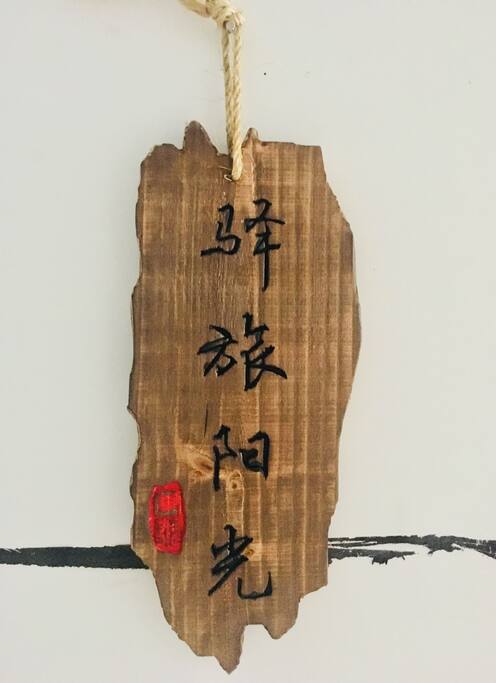 驿旅阳光